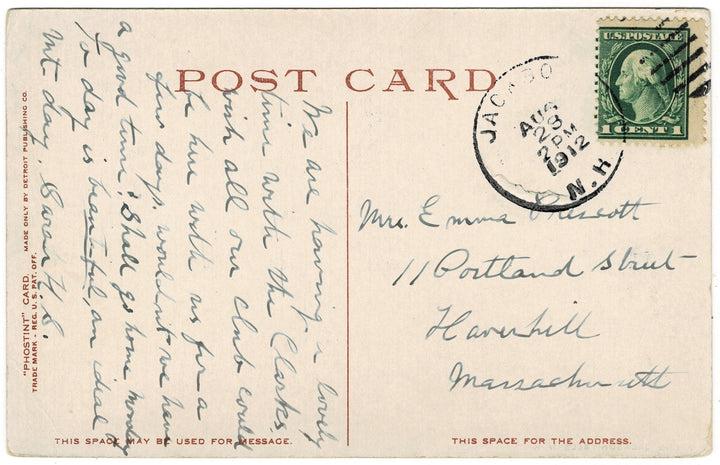 POST CARD
U.S. POSTAGE
1 CENT 1
AUG
28
2 PM
1912
N.H
We are having a lovely
time with the Clarks
wish all our club could
be here with us for a
few days, wouldn't we have
a good time! Shall go home Monday
day is beautiful, an ideal
Mt day. Sarah H. S.
Mrs. Emma Prescott
11 Portland Street
Haverhill
Massachusetts
"PHOSTINT" CARD. MADE ONLY BY DETROIT PUBLISHING CO.
TRADE MARK - REG. U.S. PAT. OFF.
THIS SPACE MAY BE USED FOR MESSAGE.
THIS SPACE FOR THE ADDRESS.